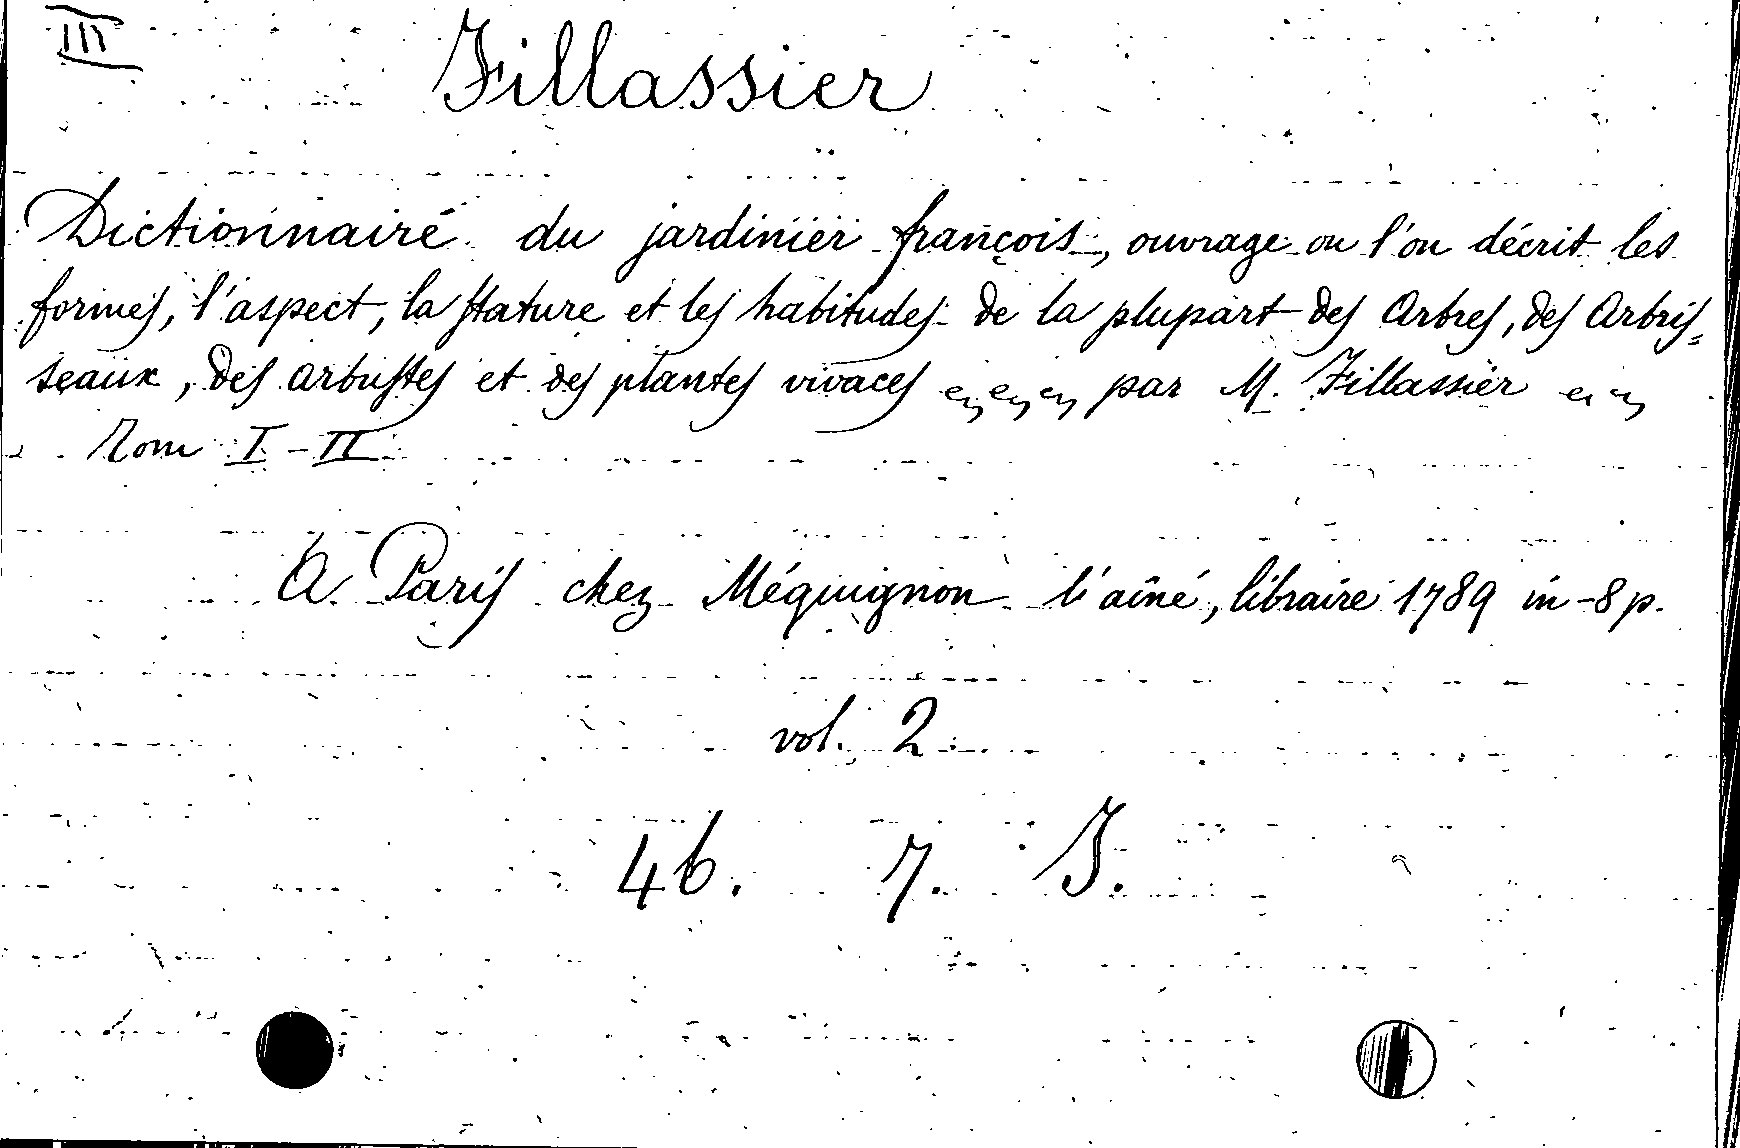 III
Fillassier
Dictionnaire du jardinier françois, ouvrage ou l'on décrit les
formes, l'aspect, la stature et les habitudes de la plupart des Arbres, des Arbris=
seaux, des arbustes et des plantes vivaces par M. Fillassier
Tom I-II
A Paris chez Méquignon l'aîné, libraire 1789 in-8 p.
vol. 2
46. 7. J.